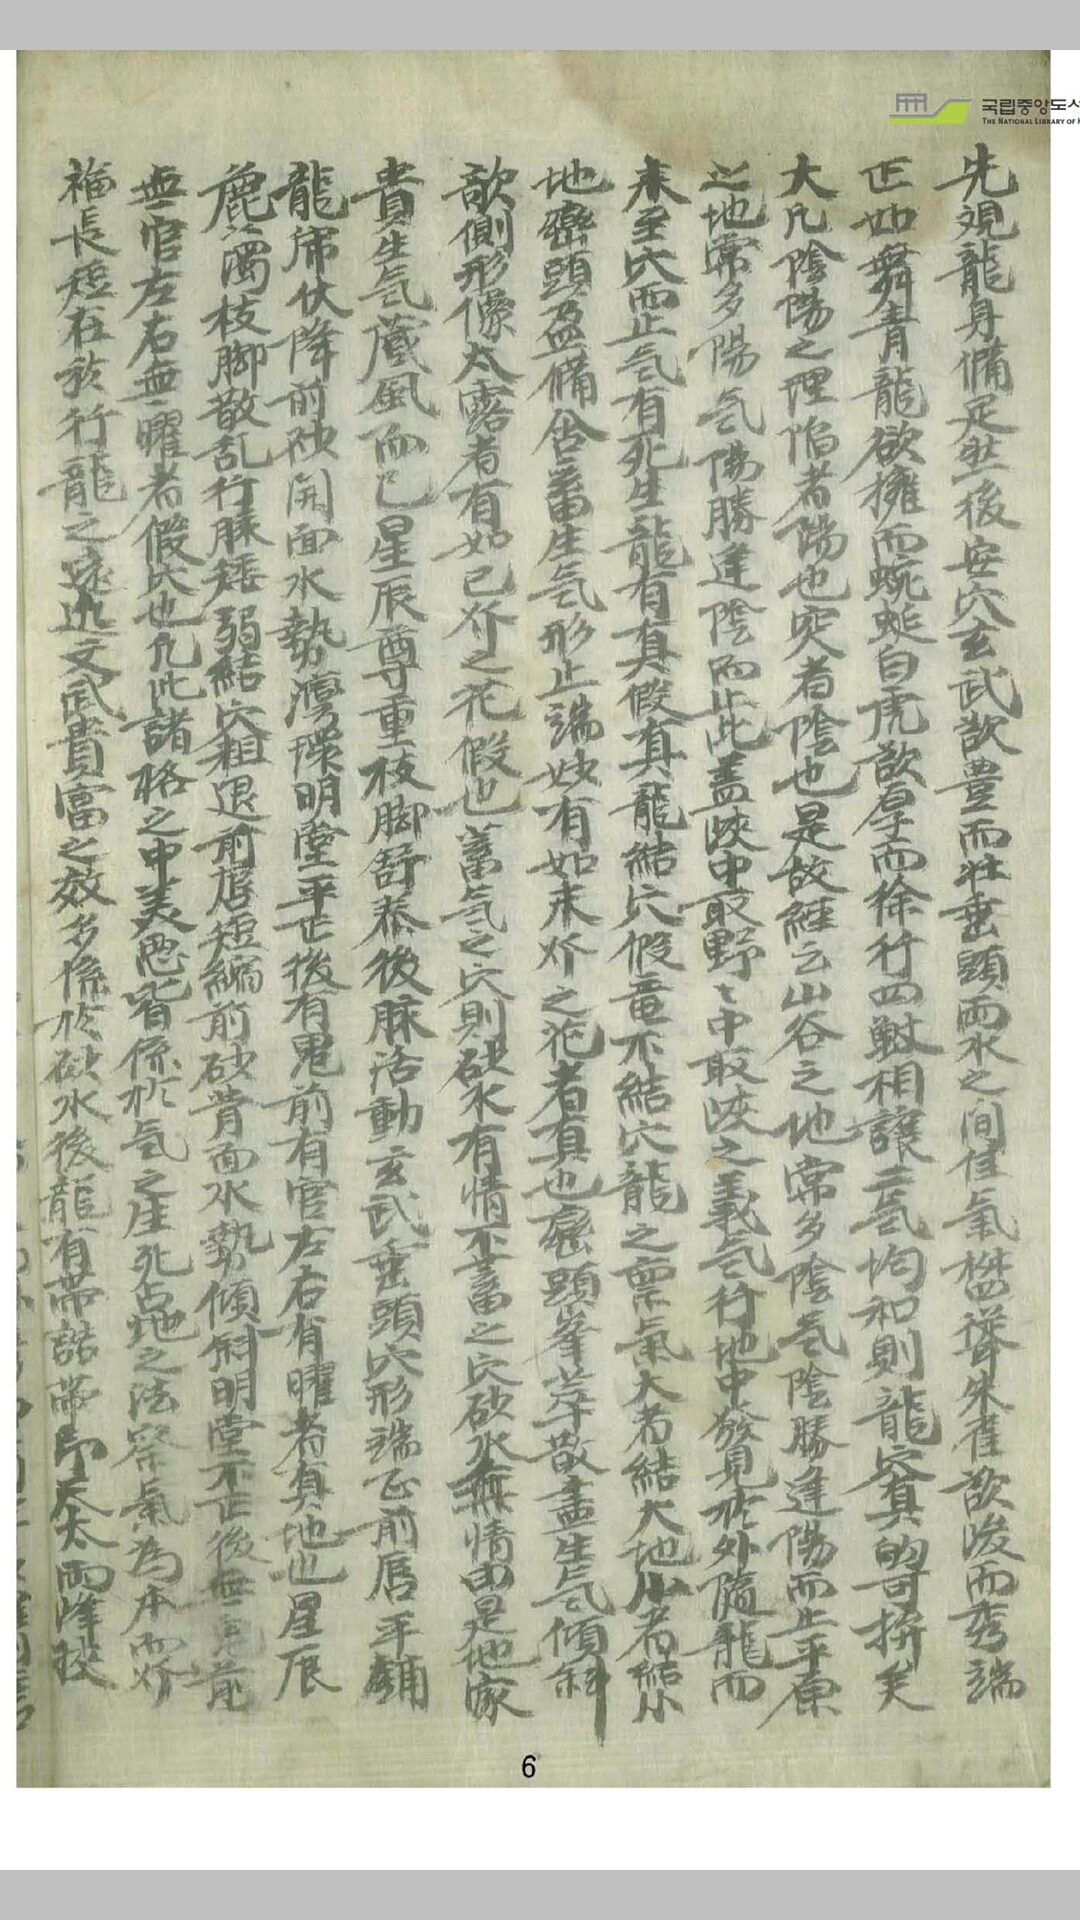 先視龍身備足然後安穴玄武欲豊而壯垂頭両水之间佳氣欝蓯朱雀欲峻而秀端
正如舞青龍欲擁而蜿蜒白虎欲厚而徐行四獣相讓二氣均和則龍穴真的可拚矣
大凡陰陽之理陷者陽也突者陰也是故經云山谷之地常多陰気陰勝逢陽而止平原
之地常多陽気陽勝逢陰而止此盖峽中最野々中最峽之義気行地中發見於外隨龍而
来至穴而止気有死生龍有真假真龍結穴假竜不結穴龍之禀氣大者結大地小者結小
地巒頭盈備含蓄生気形止端妙有如未介之花者真也巒頭峯萃散盡生气傾斜
欹側形像太露者有如已介之花假也蓄气之穴則砂水有情不蓄之穴砂水無情由是地家
貴生气藏風而已星辰尊重枝脚舒泰後脉活動玄武垂頭穴形端正前唇平鋪
龍席伏降前砂開面水勢灣環明堂平正後有鬼前有官左右有曜者真地也星辰
麁濁枝脚散乱行脉矮弱結穴粗退前唇短縮前砂背面水勢傾斜明堂不正後無鬼前
無官左右無曜者假穴也凡此諸格之中美惡皆係於气之生死占地之法察氣為本而介
福長短在於行龍之遠近文武貴富之效多係於砂水後龍有帶誥帶印天太両峰挾
国립중앙도서
THE NATIONAL LIBRARY OF K
6